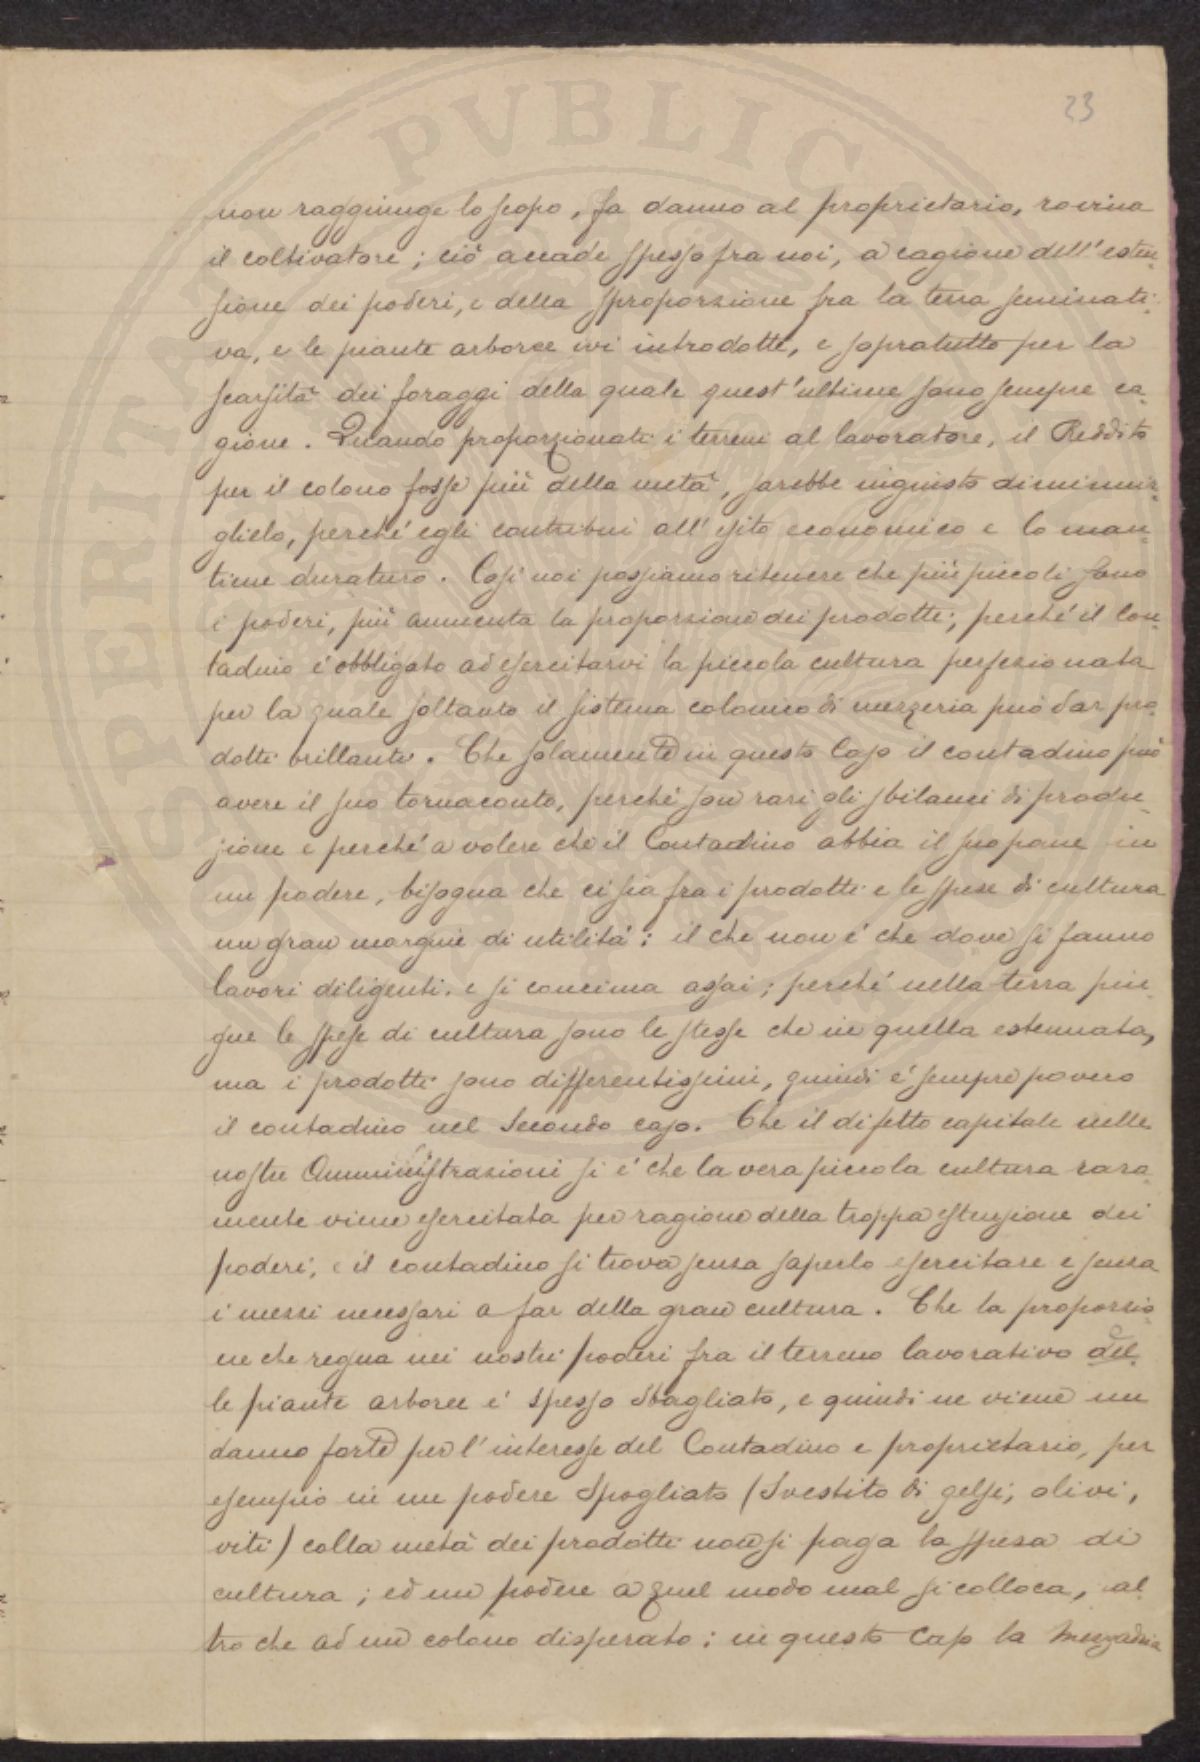 23
non raggiunge lo scopo, fa danno al proprietario, rovina
il coltivatore; ciò accade spesso fra noi, a cagione dell'esten-
sione dei poderi, e della sproporzione fra la terra seminati-
va, e le piante arboree ivi introdotte, e sopratutto per la
scarsità dei foraggi della quale quest'ultime sono sempre ca-
gione. Quando proporzionati i terreni al lavoratore, il Reddito
per il colono fosse più della metà, sarebbe ingiusto diminuir-
glielo, perché egli contribuì all'esito economico e lo man-
tiene duraturo. Così noi possiamo ritenere che più piccoli sono
i poderi, più aumenta la proporzione dei prodotti; perché il Con-
tadino é obbligato ad esercitarvi la piccola cultura perfezionata
per la quale soltanto il sistema colonico di mezzeria può dar pro-
dotti brillanti. Che solamente in questo Caso il contadino può
avere il suo tornaconto, perché son rari gli sbilanci di produ-
zione e perché a volere che il Contadino abbia il suo pane in
un podere, bisogna che ci sia fra i prodotti e le spese di cultura
un gran margine di utilità: il che non é che dove si fanno
lavori diligenti. e si concima assai; perché nella terra pin-
gue le spese di cultura sono le stesse che in quella estenuata,
ma i prodotti sono differentissimi, quindi é sempre povero
il contadino nel Secondo caso. Che il difetto capitale nelle
nostre Amministrazioni si é che la vera piccola cultura rara-
mente viene esercitata per ragione della troppa estensione dei
poderi, e il contadino si trova senza saperlo esercitare e senza
i mezzi necessari a far della gran cultura. Che la proporzio-
ne che regna nei nostri poderi fra il terreno lavorativo e del-
le piante arboree é spesso Sbagliato, e quindi ne viene un
danno forte per l'interesse del Contadino e proprietario, per
esempio in un podere Spogliato (Svestito di gelsi, olivi,
viti) colla metà dei prodotti non si paga la spesa di
cultura; ed un podere a quel modo mal si colloca, al
tro che ad un colono disperato: in questo Caso la Mezzadria
PROSPERITATI PVBLIC